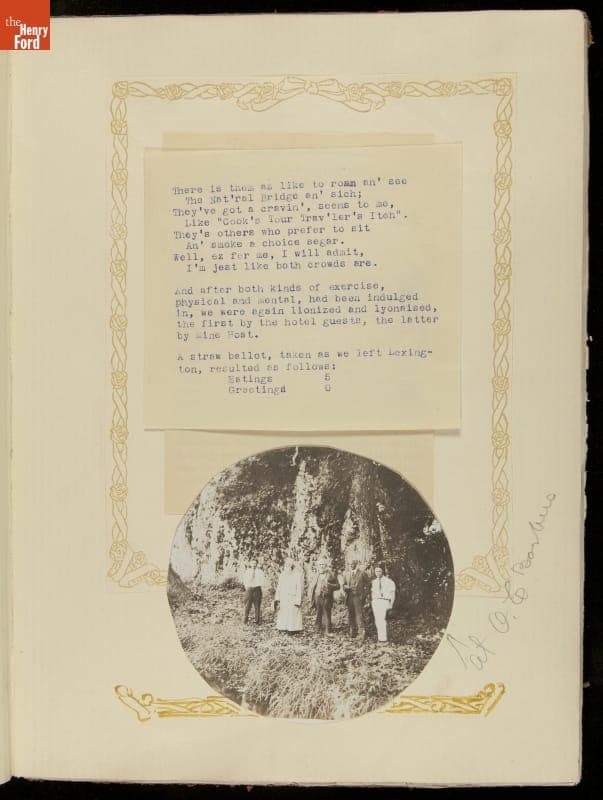 the
Henry
Ford
There is them as like to roam an' see
The Nat'ral Bridge an' sich;
They've got a cravin', seems to me,
Like "Cook's Tour Trav'ler's Itch".
They's others who prefer to sit
An' smoke a choice segar.
Well, ez fer me, I will admit,
I'm jest like both crowds are.
And after both kinds of exercise,
physical and mental, had been indulged
in, we were again lionized and lyonaised,
the first by the hotel guests, the latter
by Mine Host.
A straw ballot, taken as we left Lexing-
ton, resulted as follows:
Eatings 5
Greetings 0